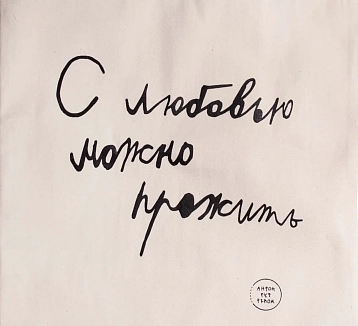 С любовью
можно
прожить
АНТОН
ТУТ
РЯДОМ